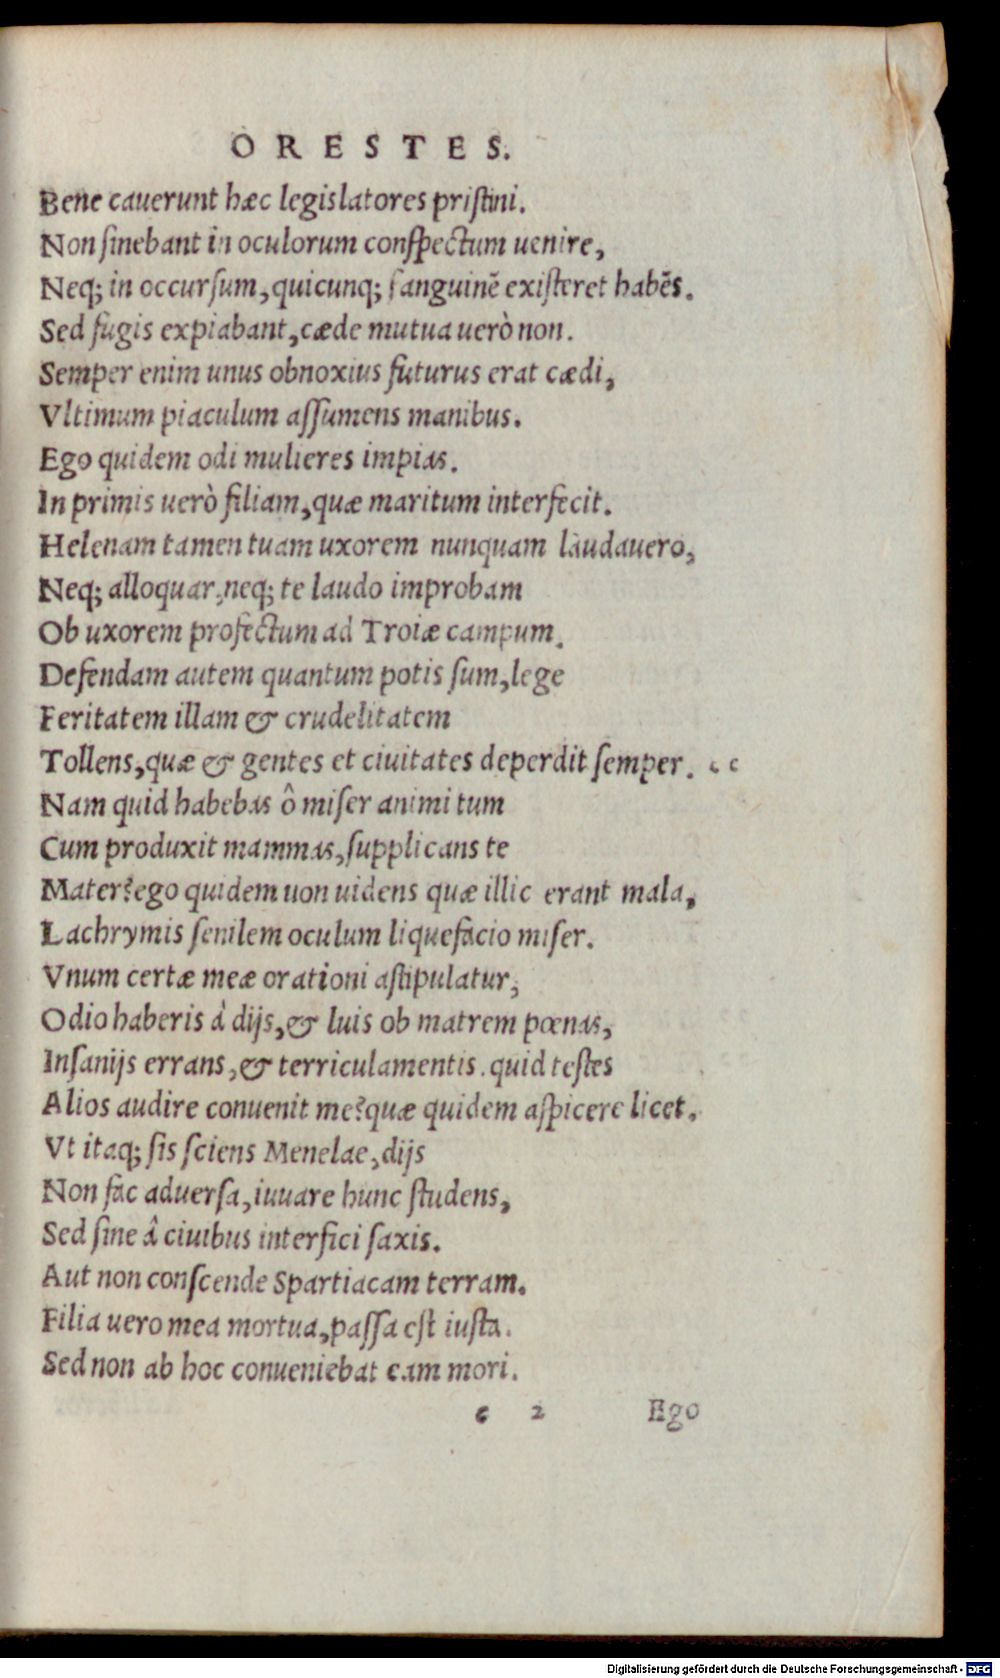 ORESTES.
Bene cauerunt hæc legislatores pristini.
Non sinebant in oculorum conspectum uenire,
Neq; in occursum, quicunq; sanguinē existeret habēs.
Sed fugis expiabant, cæde mutua uerò non.
Semper enim unus obnoxius futurus erat cædi,
Vltimum piaculum assumens manibus.
Ego quidem odi mulieres impias.
In primis uerò filiam, quæ maritum interfecit.
Helenam tamen tuam uxorem nunquam làudauero,
Neq; alloquar, neq; te laudo improbam
Ob uxorem profectum ad Troiæ campum.
Defendam autem quantum potis sum, lege
Feritatem illam & crudelitatem
Tollens, quæ & gentes et ciuitates deperdit semper. c c
Nam quid habebas ô miser animi tum
Cum produxit mammas, supplicans te
Mater? ego quidem uon uidens quæ illic erant mala,
Lachrymis senilem oculum liquefacio miser.
Vnum certæ meæ orationi astipulatur,
Odio haberis à dijs, & luis ob matrem pœnas,
Insanijs errans, & terriculamentis. quid testes
Alios audire conuenit me? quæ quidem aspicere licet.
Vt itaq; sis sciens Menelae, dijs
Non fac aduersa, iuuare hunc studens,
Sed sine â ciuibus interfici saxis.
Aut non conscende Spartiacam terram.
Filia uero mea mortua, passa est iusta.
Sed non ab hoc conueniebat eam mori.
c 2 Ego
Digitalisierung gefördert durch die Deutsche Forschungsgemeinschaft - DFG